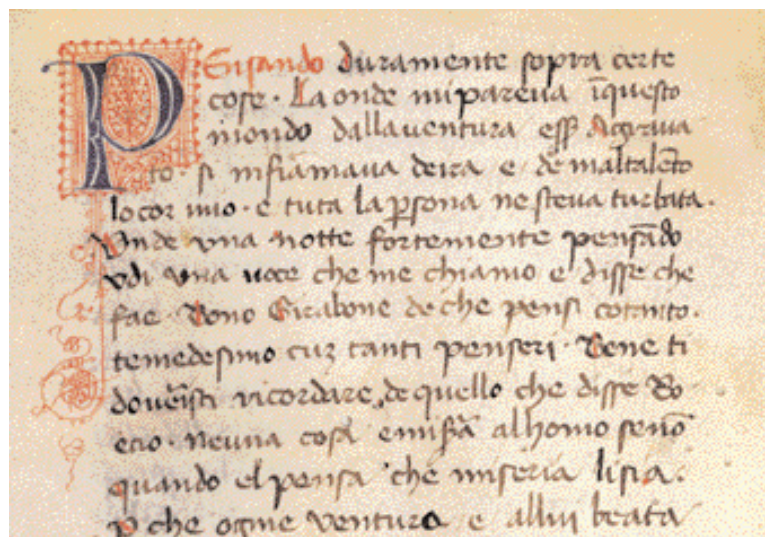 PEnsando duramente sopra certe
cose · La onde mi pareua ĩ questo
mondo dalla uentura esß Aggraua
to · si infiamaua deira e de maltalẽto
lo cor mio · e tuta la ꝑsona ne steua turbata .
Vnde vna notte fortemente pensãdo
vdi vna uoce che me chiamo e disse che
fae · Bono Girabone de che pensi cotanto ·
te medesimo cuz tanti penseri · Bene ti
douer̃sti ricordare de quello che disse Bo
ecio · neuna cosa e misĩa al homo senõ
quando el pensa che miseria li sia .
ꝑ che ogne ventura e allui beata